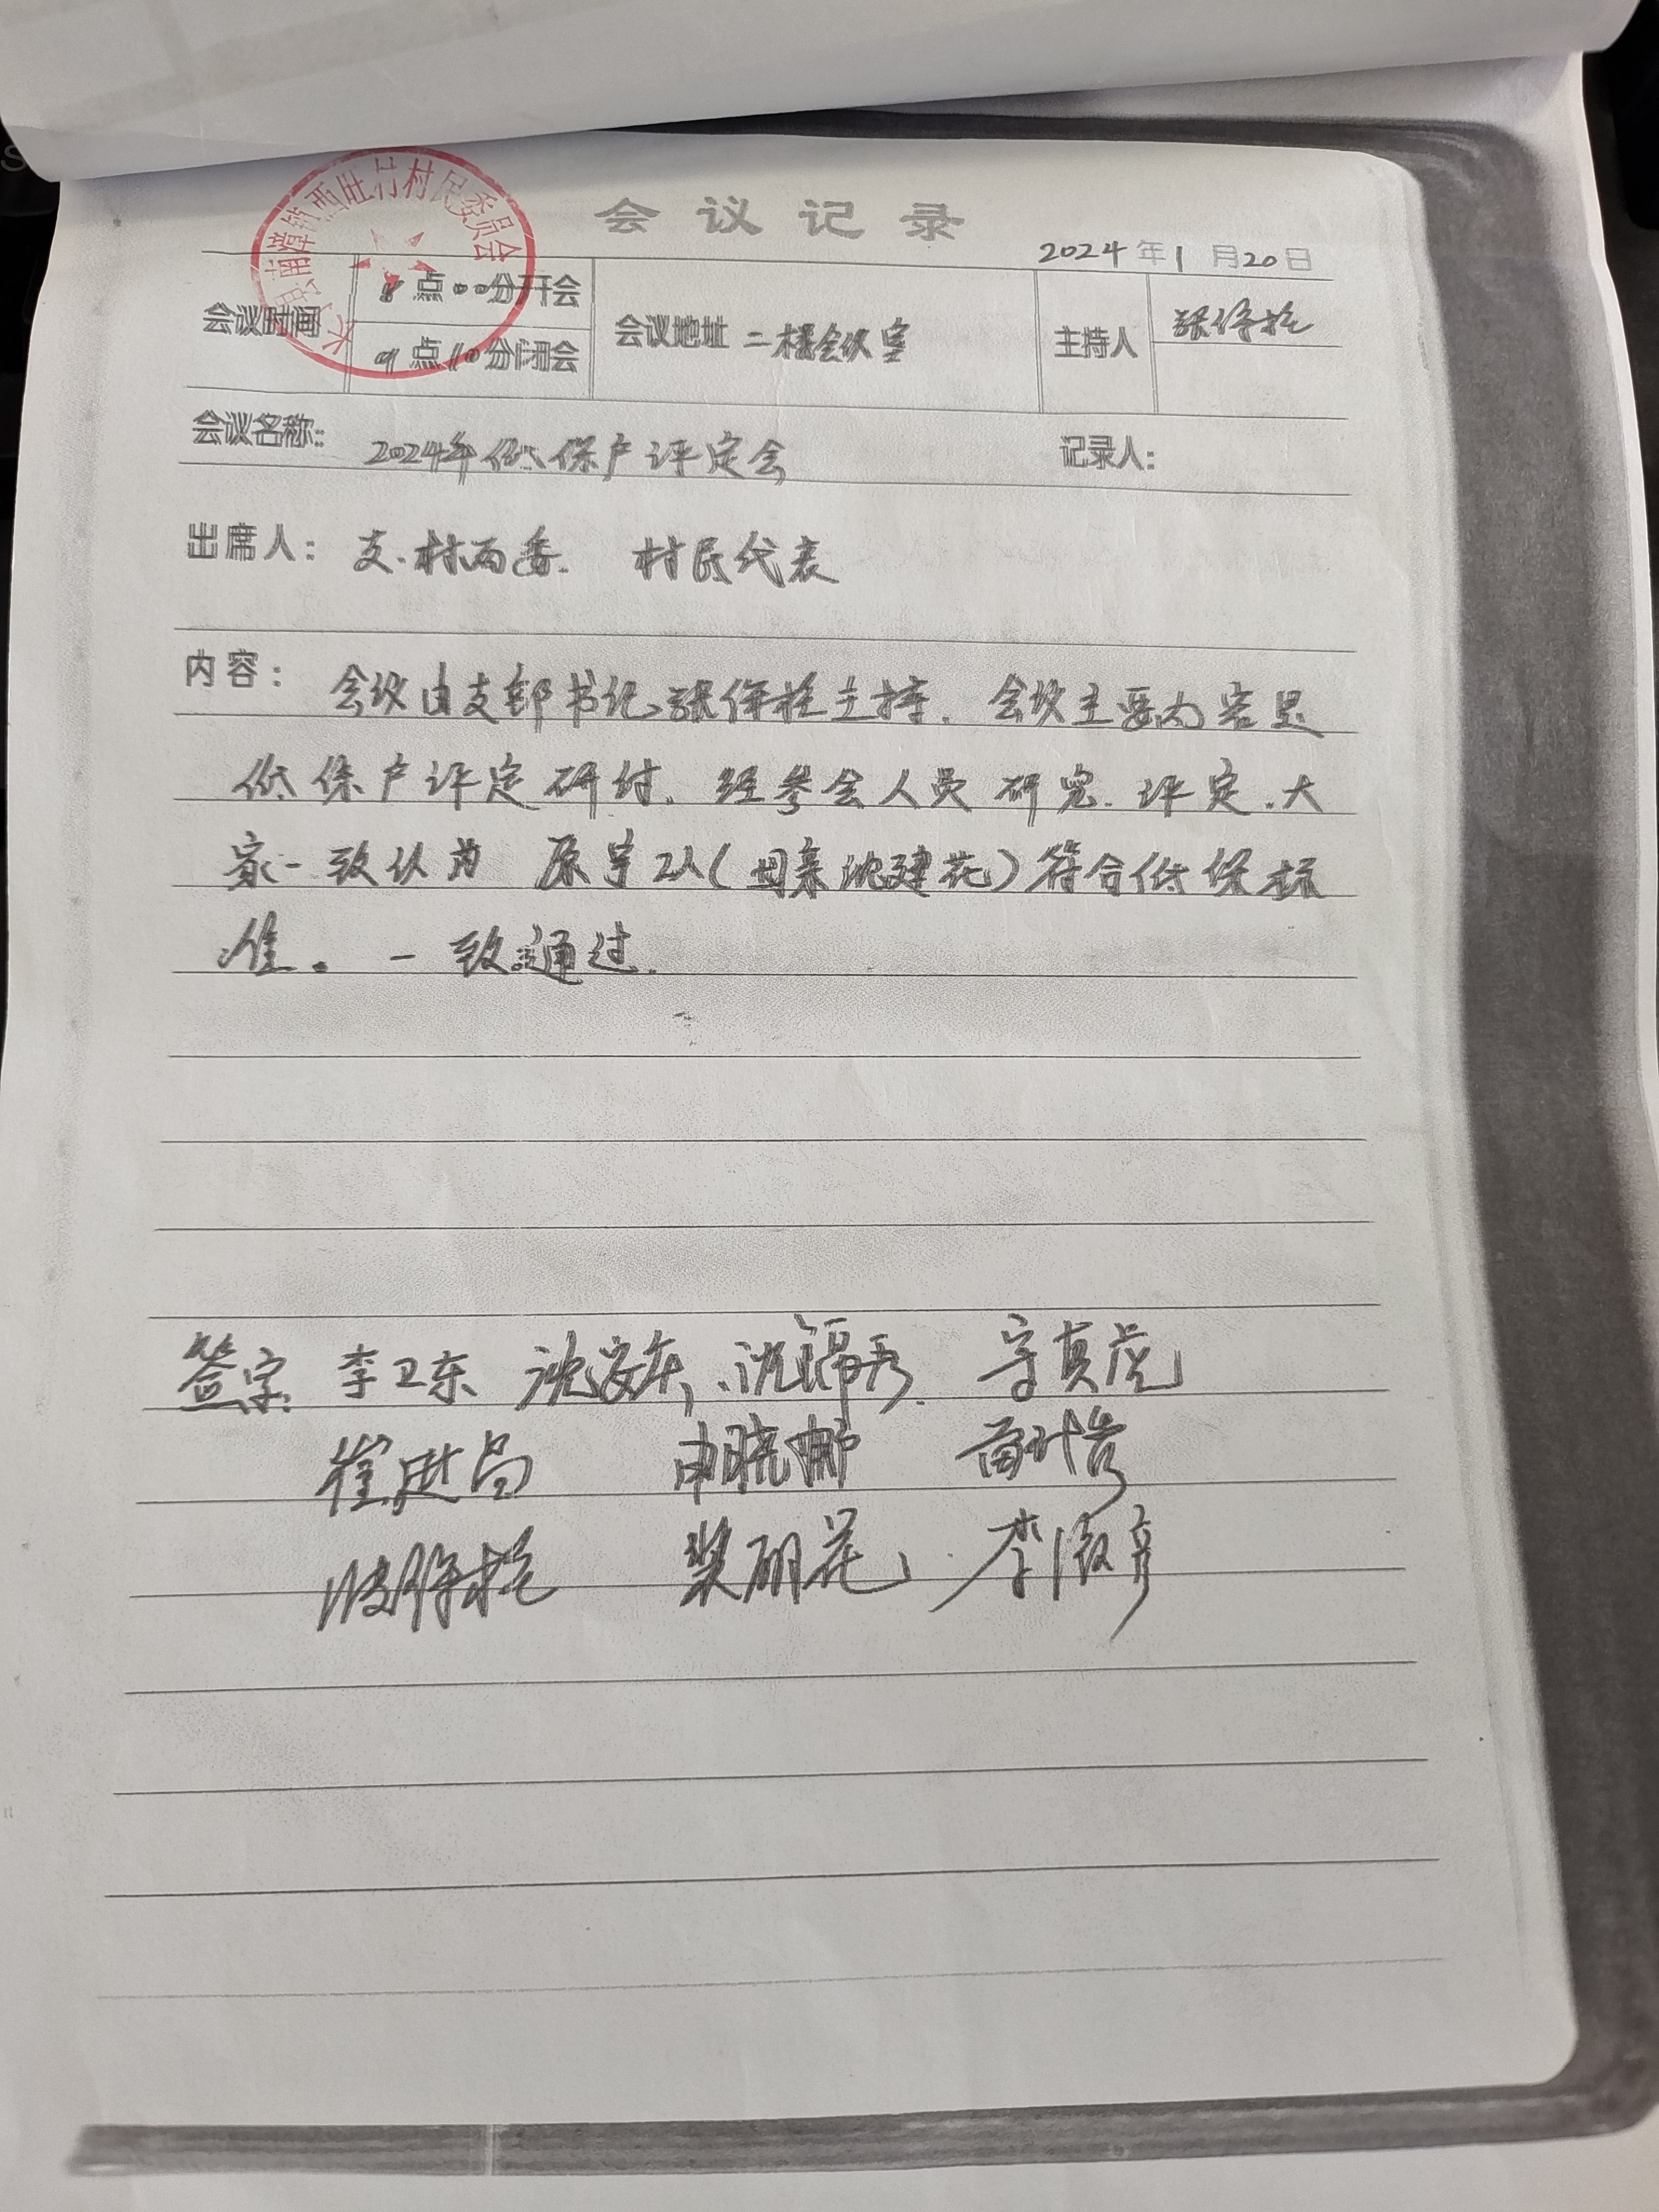 村民委员会
会议记录
2024年1月20日
会议时间 8点00分开会 会议地址 二楼会议室 主持人 张保拴
9点10分闭会
会议名称: 2024年低保户评定会 记录人:
出席人: 支.村两委. 村民代表
内容: 会议由支部书记张保拴主持. 会议主要内容是
低保户评定研讨. 经参会人员研究.评定.大
家一致认为 原宇2人(母亲沈建花)符合低保标
准。一致通过.
签字. 李卫东